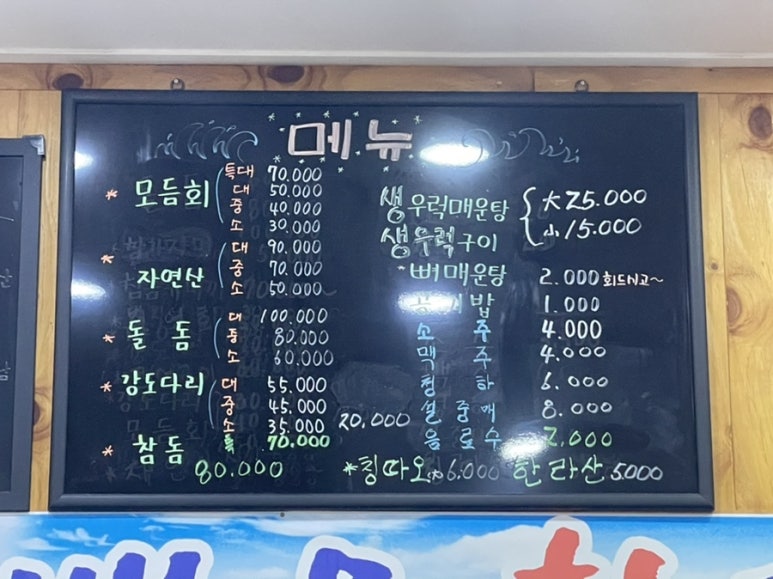 메뉴
* 모듬회 특대 70.000
대 50.000
중 40.000
소 30.000
* 자연산 대 90.000
중 70.000
소 50.000
* 돌돔 대 100.000
중 80.000
소 60.000
* 강도다리 대 55.000
중 45.000
소 35.000
20,000
* 참돔 특 70.000
80.000
생우럭매운탕 大 25.000
생우럭구이 小 15.000
뼈매운탕 2.000 회드시고~
공기밥 1.000
소주 4.000
맥주 4.000
청하 6.000
설중매 8.000
음료수 2,000
*칭따오* 6.000 한라산 5.000